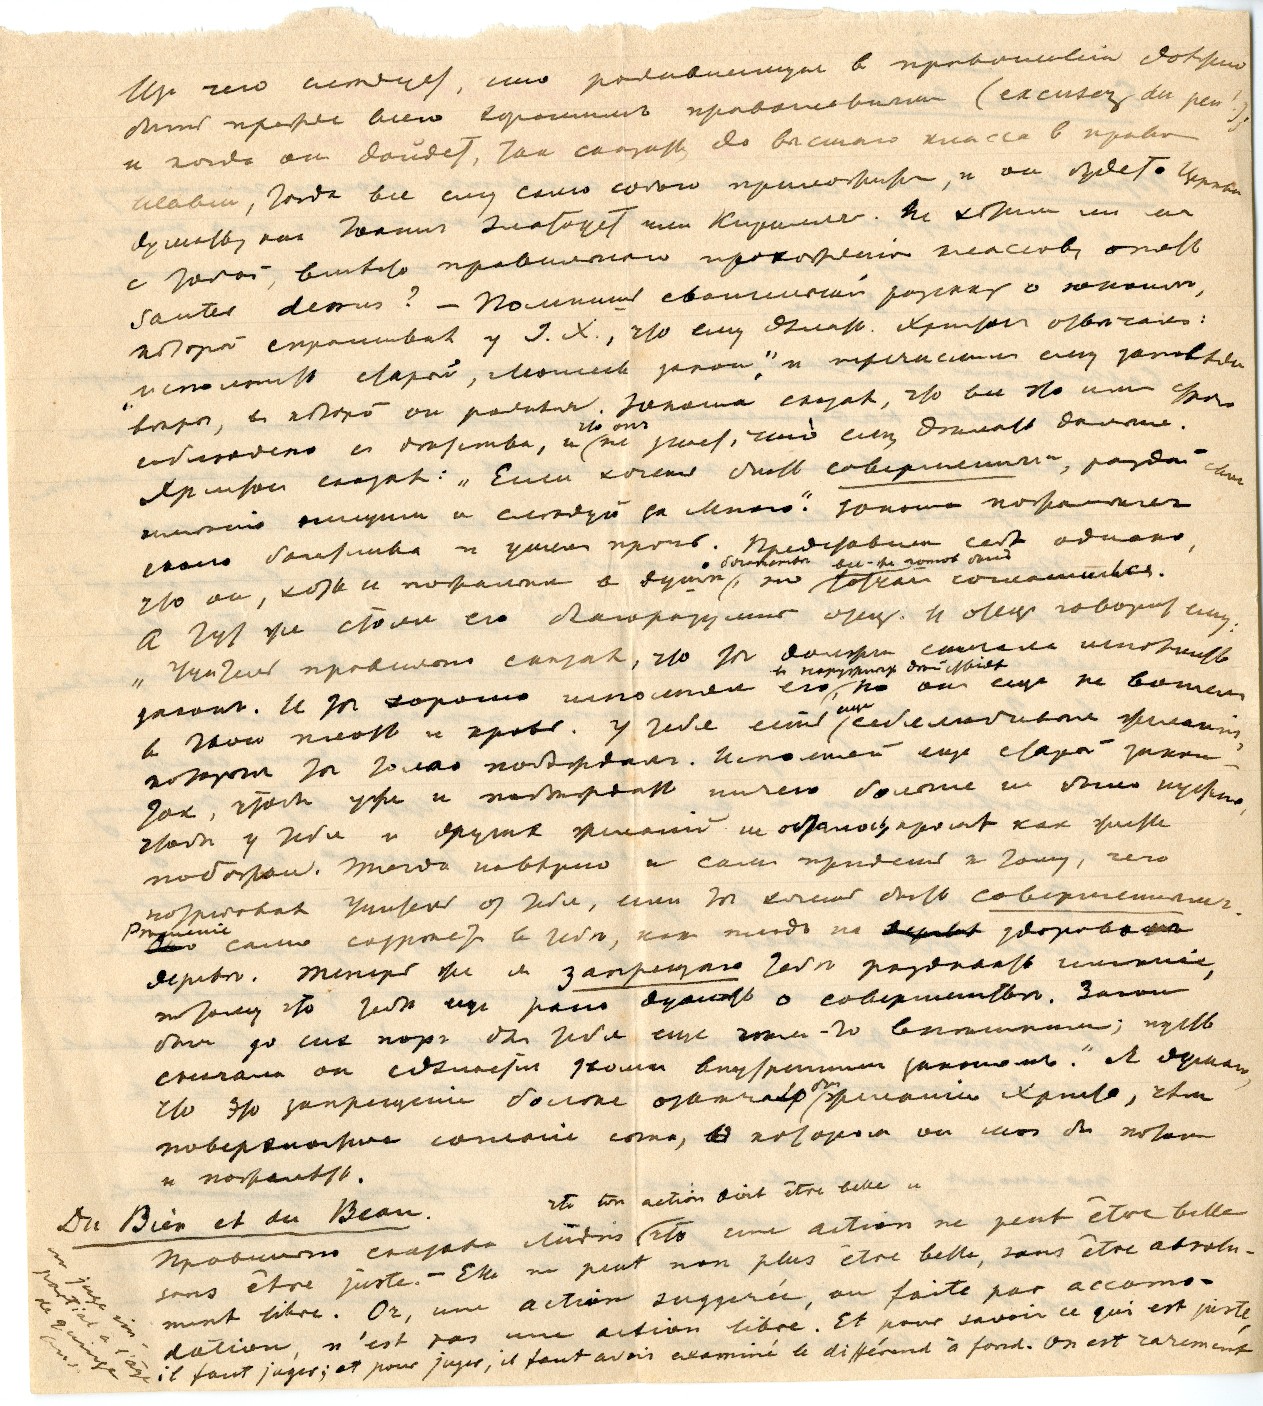 Из чего следует, что родившемуся в православіи
быть прежде всего хорошимъ православнымъ (excusez du peu!)
и когда он дойдет, так сказать до высшаго класса в право
славіи, тогда все ему само собою приложится, и он будет
думать, как Іоаннъ Златоуст или Кириллъ. Не хотим ли мы
с тобой, вмѣсто правильнаго прохожденія классовъ
sauter dessus? — Помнишь евангельскій разсказ о юношѣ,
который спрашивал у І. Х., что ему дѣлать. Христосъ отвѣчалъ:
"исполняй старый, Моисеевъ законъ," и перечислил ему заповѣди
вѣры, в которой он родился. Юноша сказал, что все это им
соблюдено с дѣтства, и что онъ не знает, что ему дѣлать далѣе.
Христосъ сказал: „Если хочешь быть совершеннымъ", раздай свое
имѣніе нищим и слѣдуй за Мною." Юноша пожалѣлъ
своего богатства и ушел прочь. Представим себѣ однако,
что он, хотя и пожалѣл в душѣ богатства, но все-же
А тут же стоял его благоразумный отец. И отец говорит ему:
„Учитель правильно сказал, что ты должен сначала исполнить
законъ. И ты хорошо исполнял его в наружных дѣйствіях, но он еще не вошел
в твою плоть и кровь. У тебя есть еще себялюбивыя желанія,
которыя ты только побѣждал. Исполняй еще старый закон
так, чтобы уже и побѣждать ничего больше не было нужно,
чтобы у тебя и других желаній не оставалось, кромѣ как
Тогда навѣрно и сам придешь к тому, чего
потребовал Учитель от тебя, если ты хочешь быть совершеннымъ.
Рѣшеніе само созрѣетъ в тебѣ, как плодъ на здоровомъ
деревѣ. Теперь же я запрещаю тебѣ раздавать имѣніе,
потому что тебѣ еще рано думать о совершенствѣ. Закон
был до сих поръ для тебя еще чѣм-то внѣшним; пусть
сначала он сдѣлается твоим внутренним закономъ." Я думаю,
что это запрещеніе болѣе отвѣчало бы желанію Христа, чѣм
поверхностное согласіе сына, о котором он мог бы потом
и пожалѣть.
Du Bien et du Beau.
что ton action doit être belle и
Правильно сказала Лидія что une action ne peut être belle
sans être juste. — Elle ne peut non plus être belle, sans être absolu-
ment libre. Or, une action suggerée, ou faite par accomo-
dation, n'est pas une action libre. Et pour savoir ce qui est juste,
il faut juger; et pour juger, il faut avoir examiné le différend à fond. On est rarement
un juge im-
partial à l'âge
de quinze
ans.